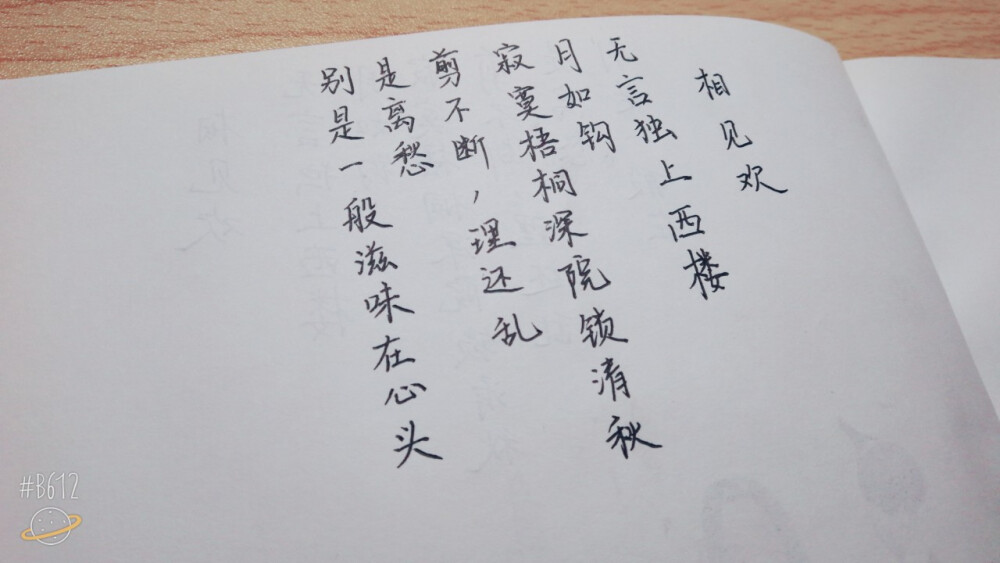 相见欢
无言独上西楼
月如钩
寂寞梧桐深院锁清秋
剪不断，理还乱
是离愁
别是一般滋味在心头
#B612